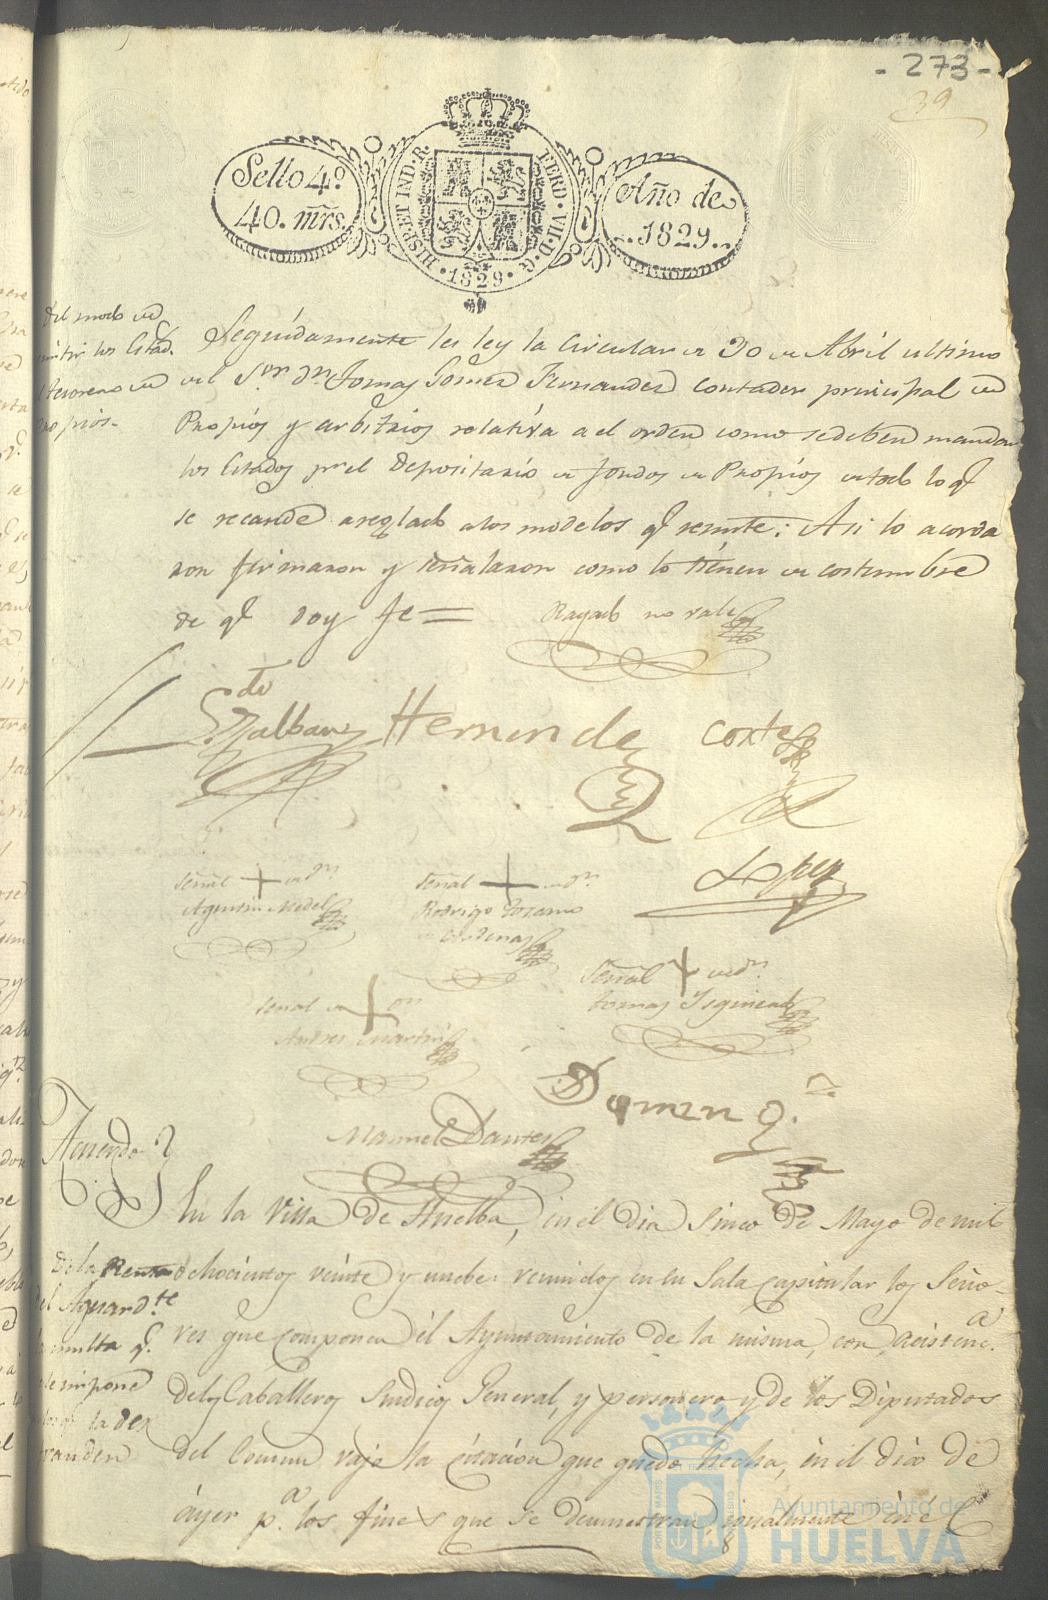 - 273 -
39
Sello 4º
40. mrs.
HISP. ET IND. R.
FERD. VII. D. G.
1829
Año de
1829
del modo de
los Estad.
de
propios.
Seguidamente les ley la Circular de 30 de Abril ultimo
del Sor. Dn. Tomas Gomez Fernandez contador principal de
Propios y arbitrios relativa a el orden como se deben mandar
los Estados pr. el Depositario de fondos de Propios de todo lo qe
se recaude arreglado a los modelos qe remite: Asi lo acorda
ron firmaron y señalaron como lo tienen de costumbre
de qe doy fe =
Rayado no vale
Hernande
Cortes
Lopez
Señal + de Dn.
Agustin Medel
Señal + de Dn.
Rodrigo Lozano
Cardenas
Señal + de Dn.
Tomas Isquierdo
Señal de + Dn
Andres Martin
Domin g.
Manuel Dantes
Acuerdo
En la Villa de Huelba, en el dia Sinco de Mayo de mil
De la Renta
ochocientos veinte y nuebe: reunidos en su Sala Capitular los Seño-
del Aguardte
res que componen el Ayuntamiento de la misma, con Acistenca.
multa q.
se impone
de los Caballeros Sindicos General, y personero y de los Diputados
la dex
del Comun vajo la citacion que quedo hecha, en el dia de
randen
áyer pa. los fines que se demuestran, igualmente en el
Ayuntamiento de
HUELVA